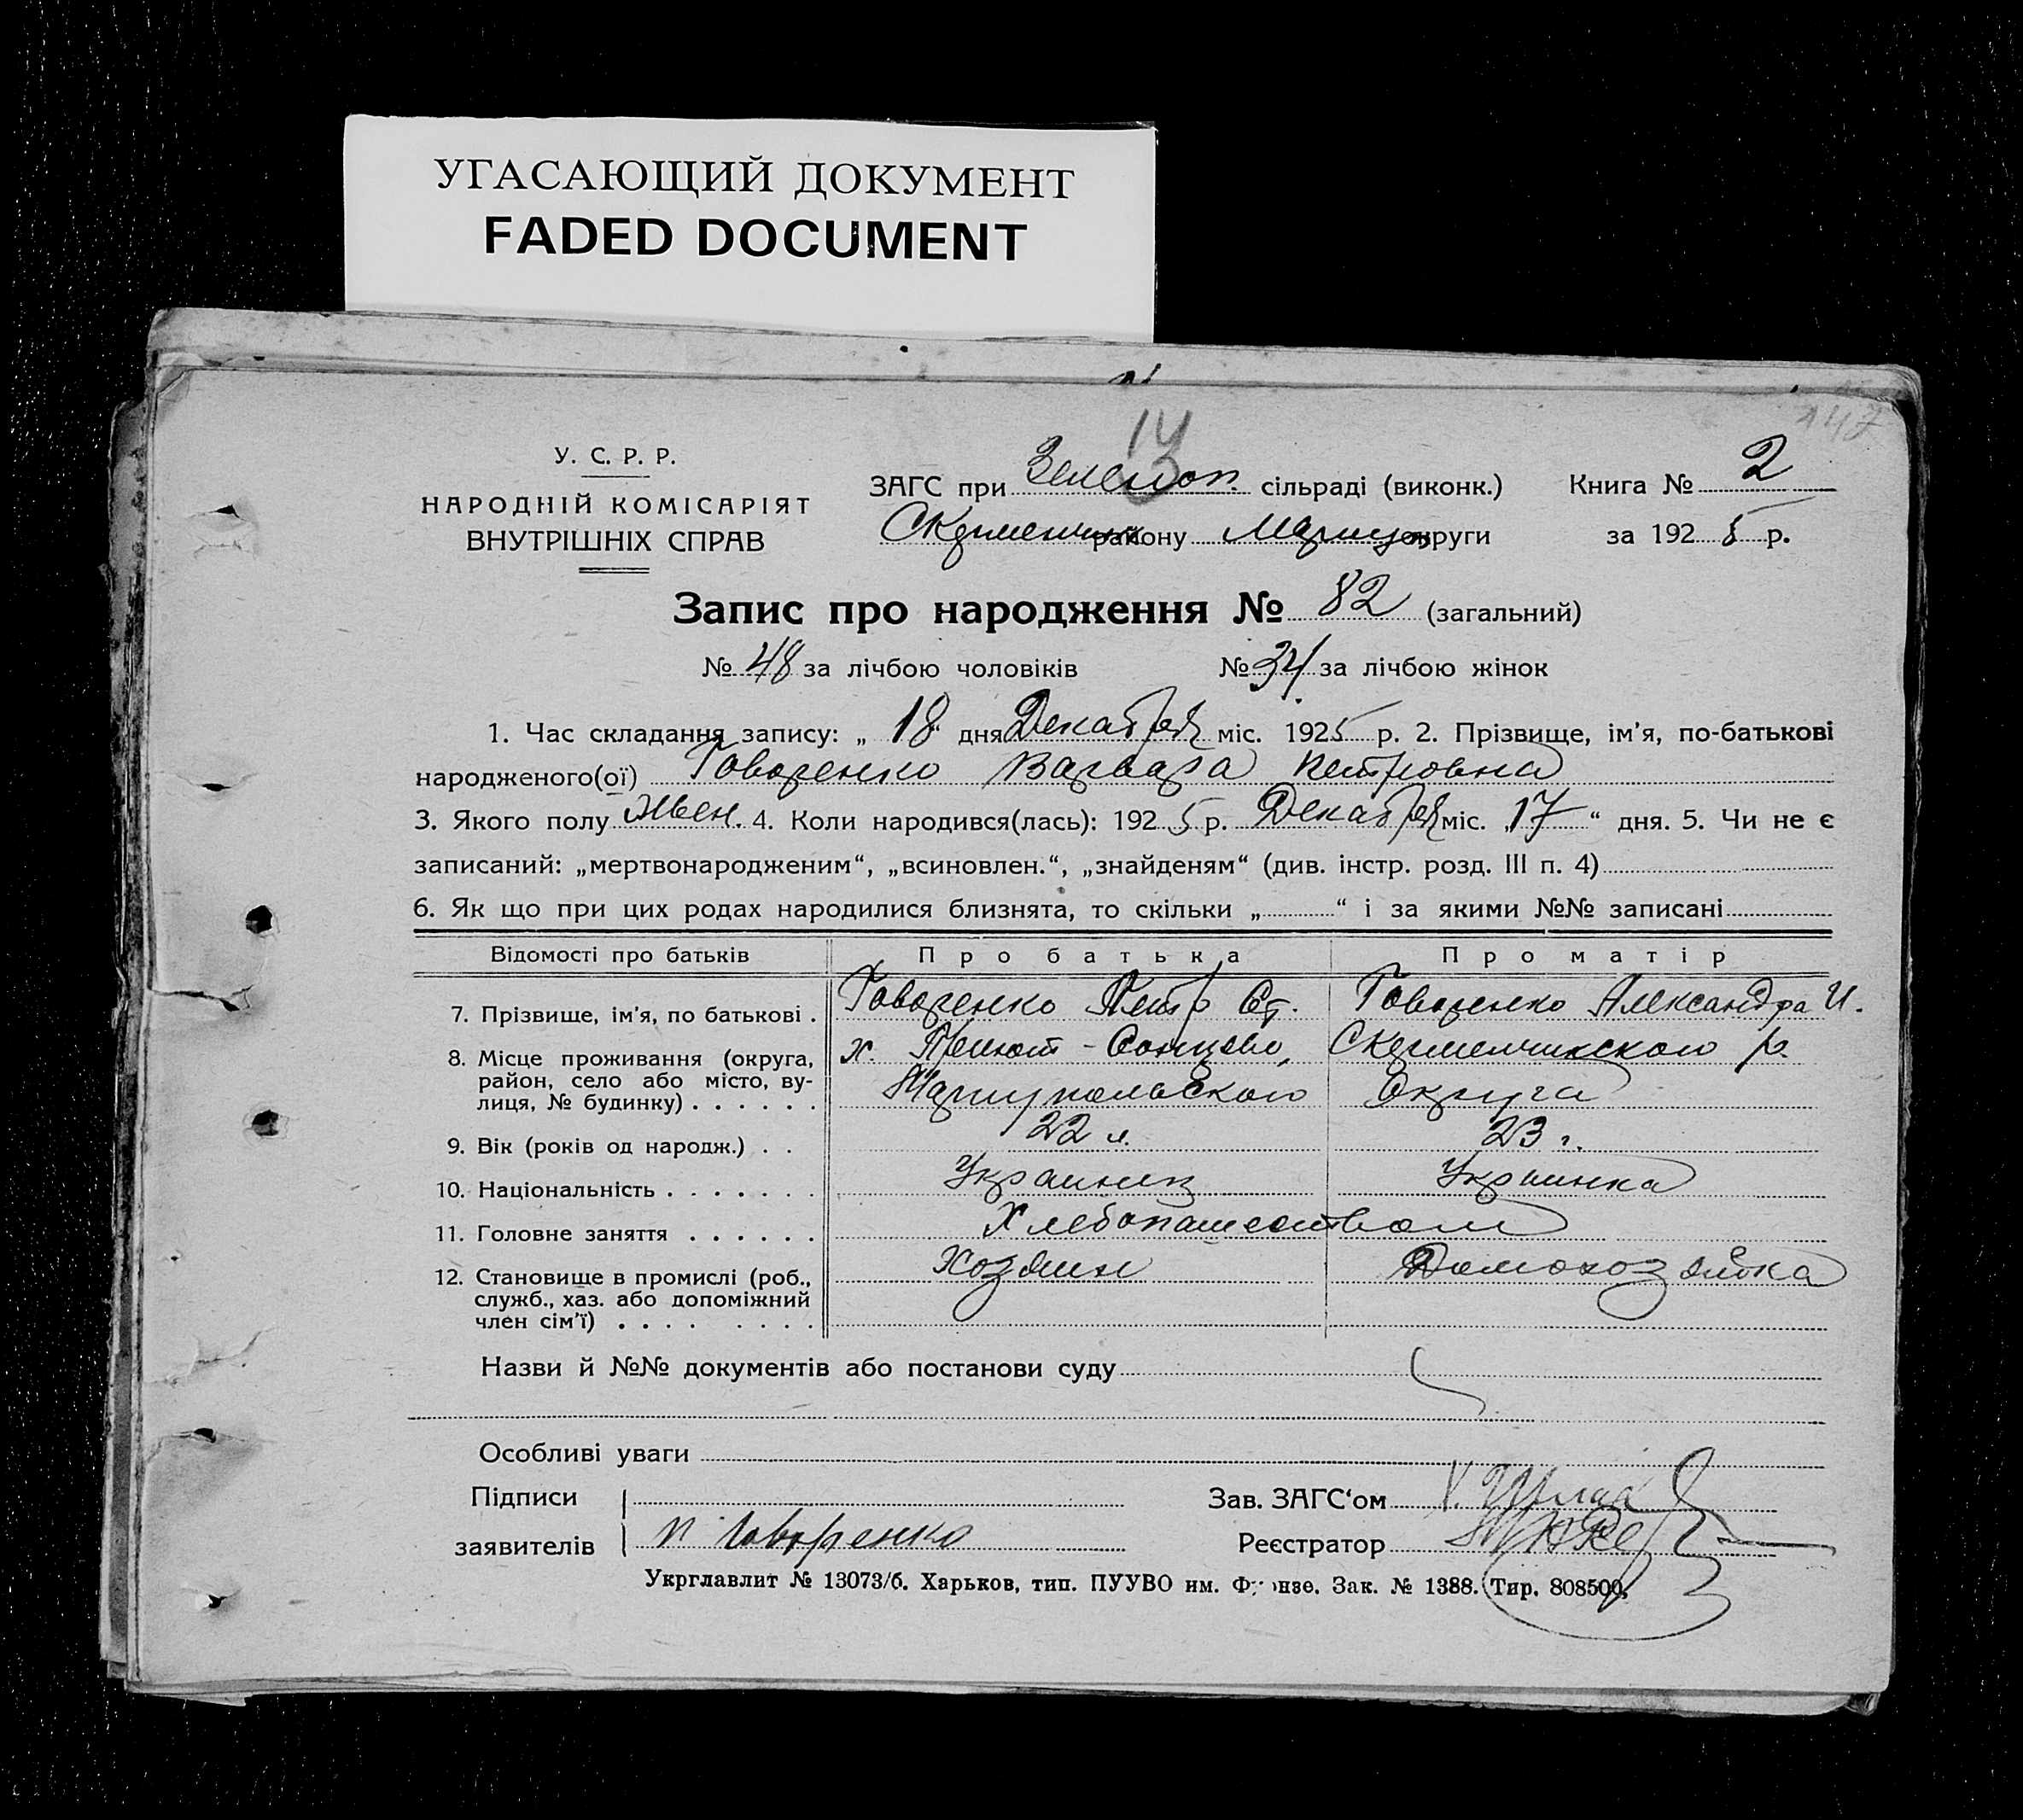 УГАСАЮЩИЙ ДОКУМЕНТ
FADED DOCUMENT
14
147
У. С. Р. Р.
НАРОДНІЙ КОМІСАРІЯТ
ВНУТРІШНІХ СПРАВ
ЗАГС при Зеленоп. сільраді (виконк.) Книга № 2
району Мариуп округи за 1925 р.
Запис про народження № 82 (загальний)
№ 48 за лічбою чоловіків № 34 за лічбою жінок
1. Час складання запису: „ 18 " дня Декабря міс. 1925 р. 2. Прізвище, ім'я, по-батькові
народженого(ої) Говоренко Варвара Петровна
3. Якого полу жен. 4. Коли народився(лась): 1925 р. Декабря міс. „17“ дня. 5. Чи не є
записаний: „мертвонародженим“, „всиновлен.“, „знайденям“ (див. інстр. розд. III п. 4)
6. Як що при цих родах народилися близнята, то скільки „ “ і за якими №№ записані
Відомості про батьків Про батька Про матір
7. Прізвище, ім'я, по батькові . Говоренко Петр Ст. Говоренко Александра И.
8. Місце проживання (округа, х. р.
район, село або місто, ву- Мариупольского Округа
лиця, № будинку) . . . . . .
9. Вік (років од народж.) . . 22 г. 23 г.
10. Національність . . . . . . . Украинец Украинка
11. Головне заняття . . . . . . Хлебопашеством
12. Становище в промислі (роб., Хозяин Домохозяйка
служб., хаз. або допоміжний
член сім'ї) . . . . . . . .
Назви й №№ документів або постанови суду
Особливі уваги
Підписи Зав. ЗАГС‘ом
заявителів П Говоренко Реєстратор
Укрглавлит № 13073/б. Харьков, тип. ПУУВО им. Фрунзе. Зак. № 1388. Тир. 808500.